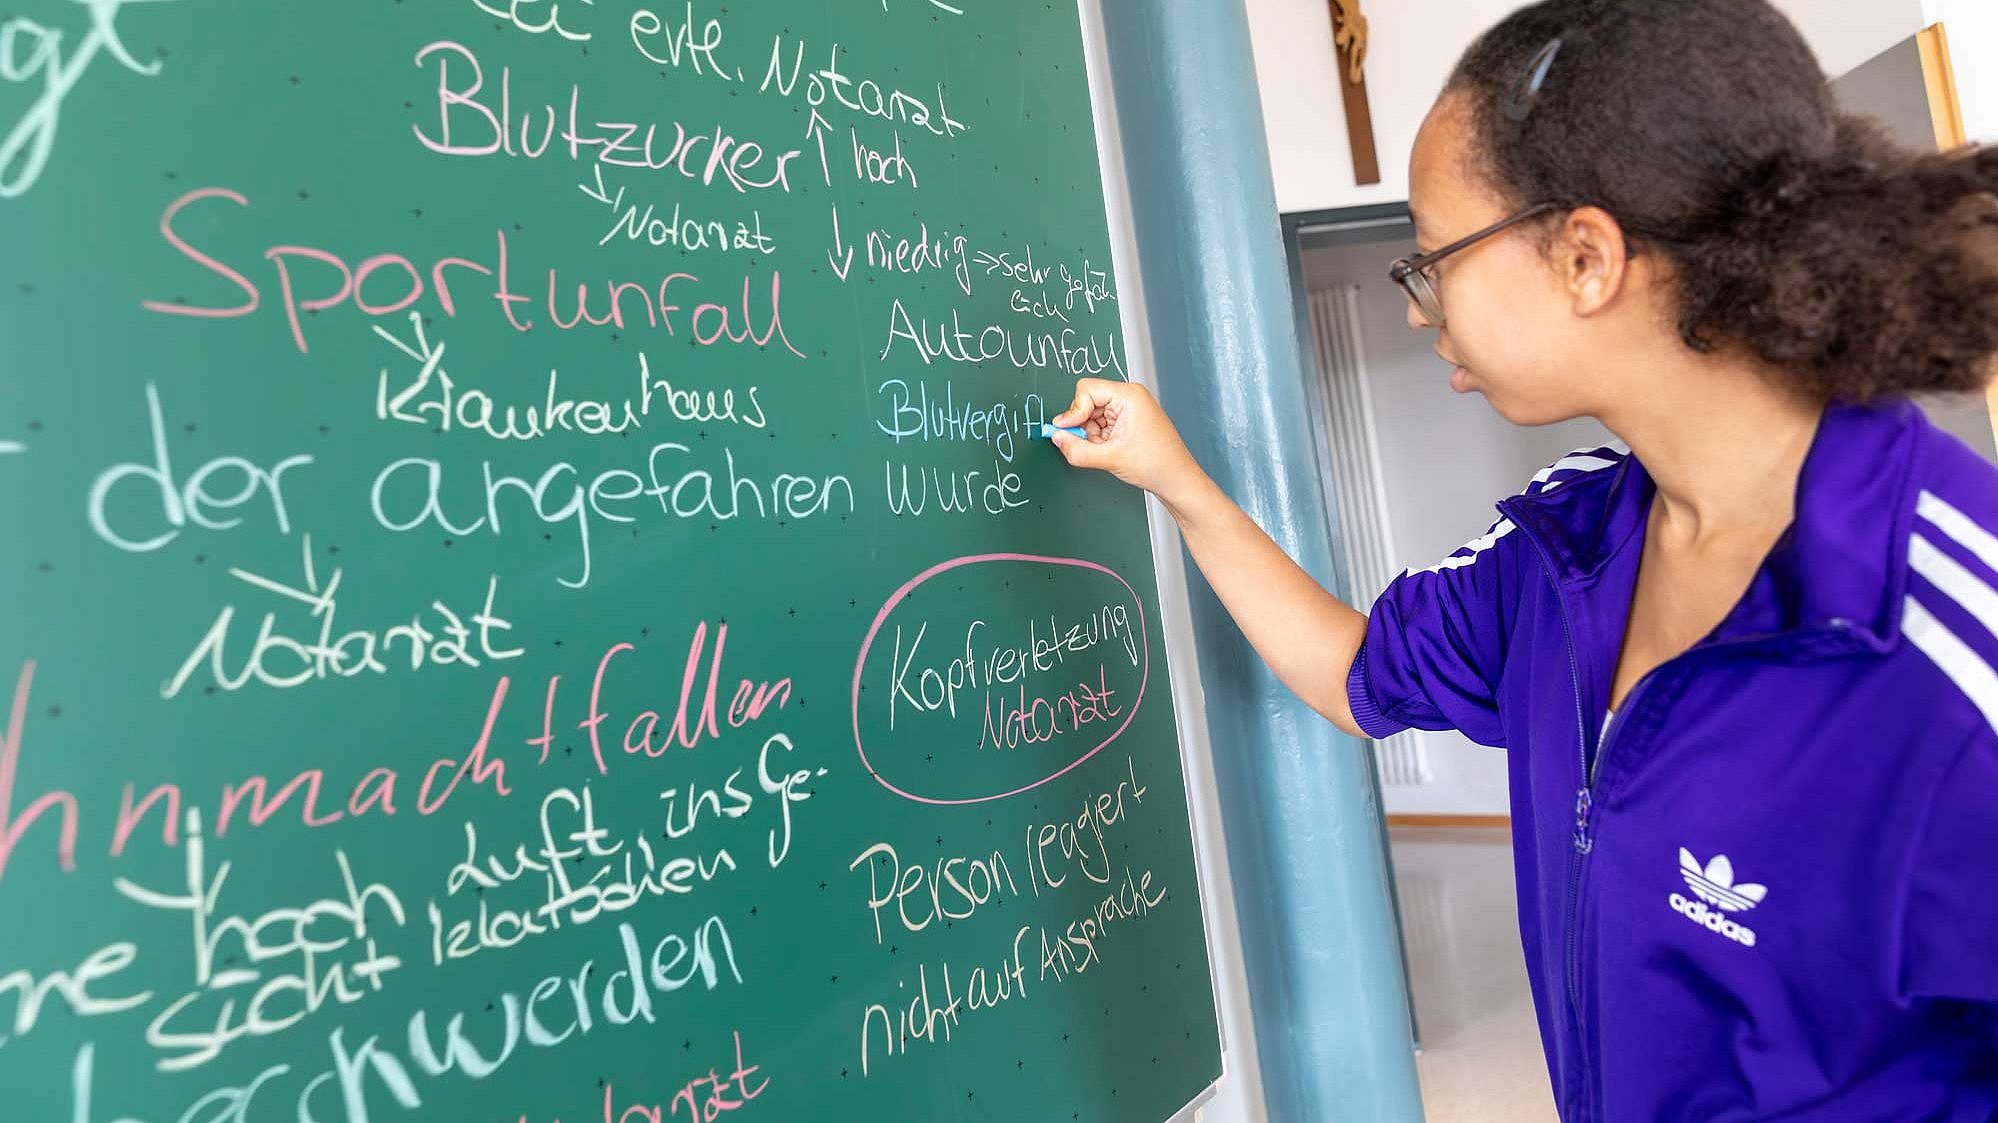 ei evtl. Notarzt
Blutzucker ↑ hoch
Notarzt
↓ niedrig → sehr gefähr-
lich
Sportunfall
Autounfall
Krankenhaus
Blutvergift
der angefahren wurde
Notarzt
Kopfverletzung
Notarzt
hnmachtfallen
hoch Luft, ins Ge-
sicht klatschen
Person reagiert
nicht auf Ansprache
ne
beschwerden
adidas